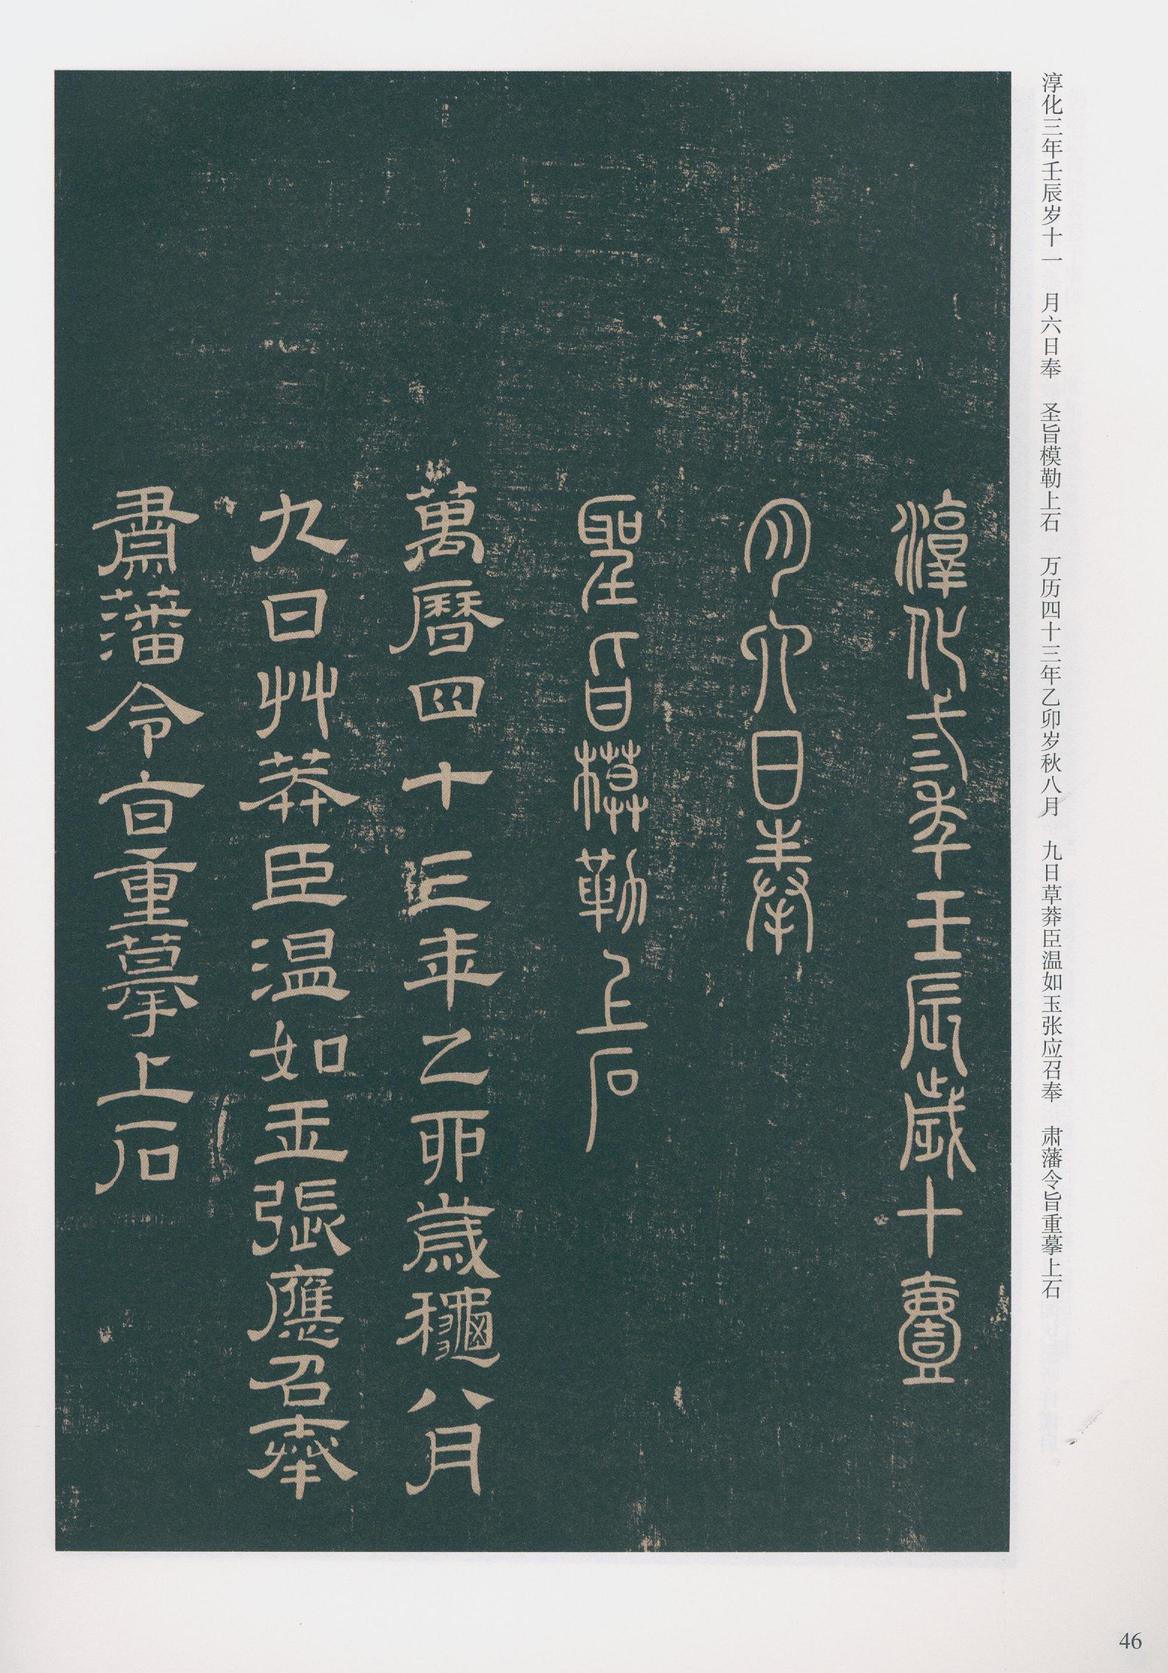 淳化三年壬辰岁十一　月六日奉　圣旨模勒上石　万历四十三年乙卯岁秋八月　九日草莽臣温如玉张应召奉　肃藩令旨重摹上石
淳化弎年壬辰歲十壹
月六日奉
聖旨模勒上石
萬曆四十三年乙卯歲龝八月
九日艸莽臣温如玉張應召奉
肅藩令旨重摹上石
46